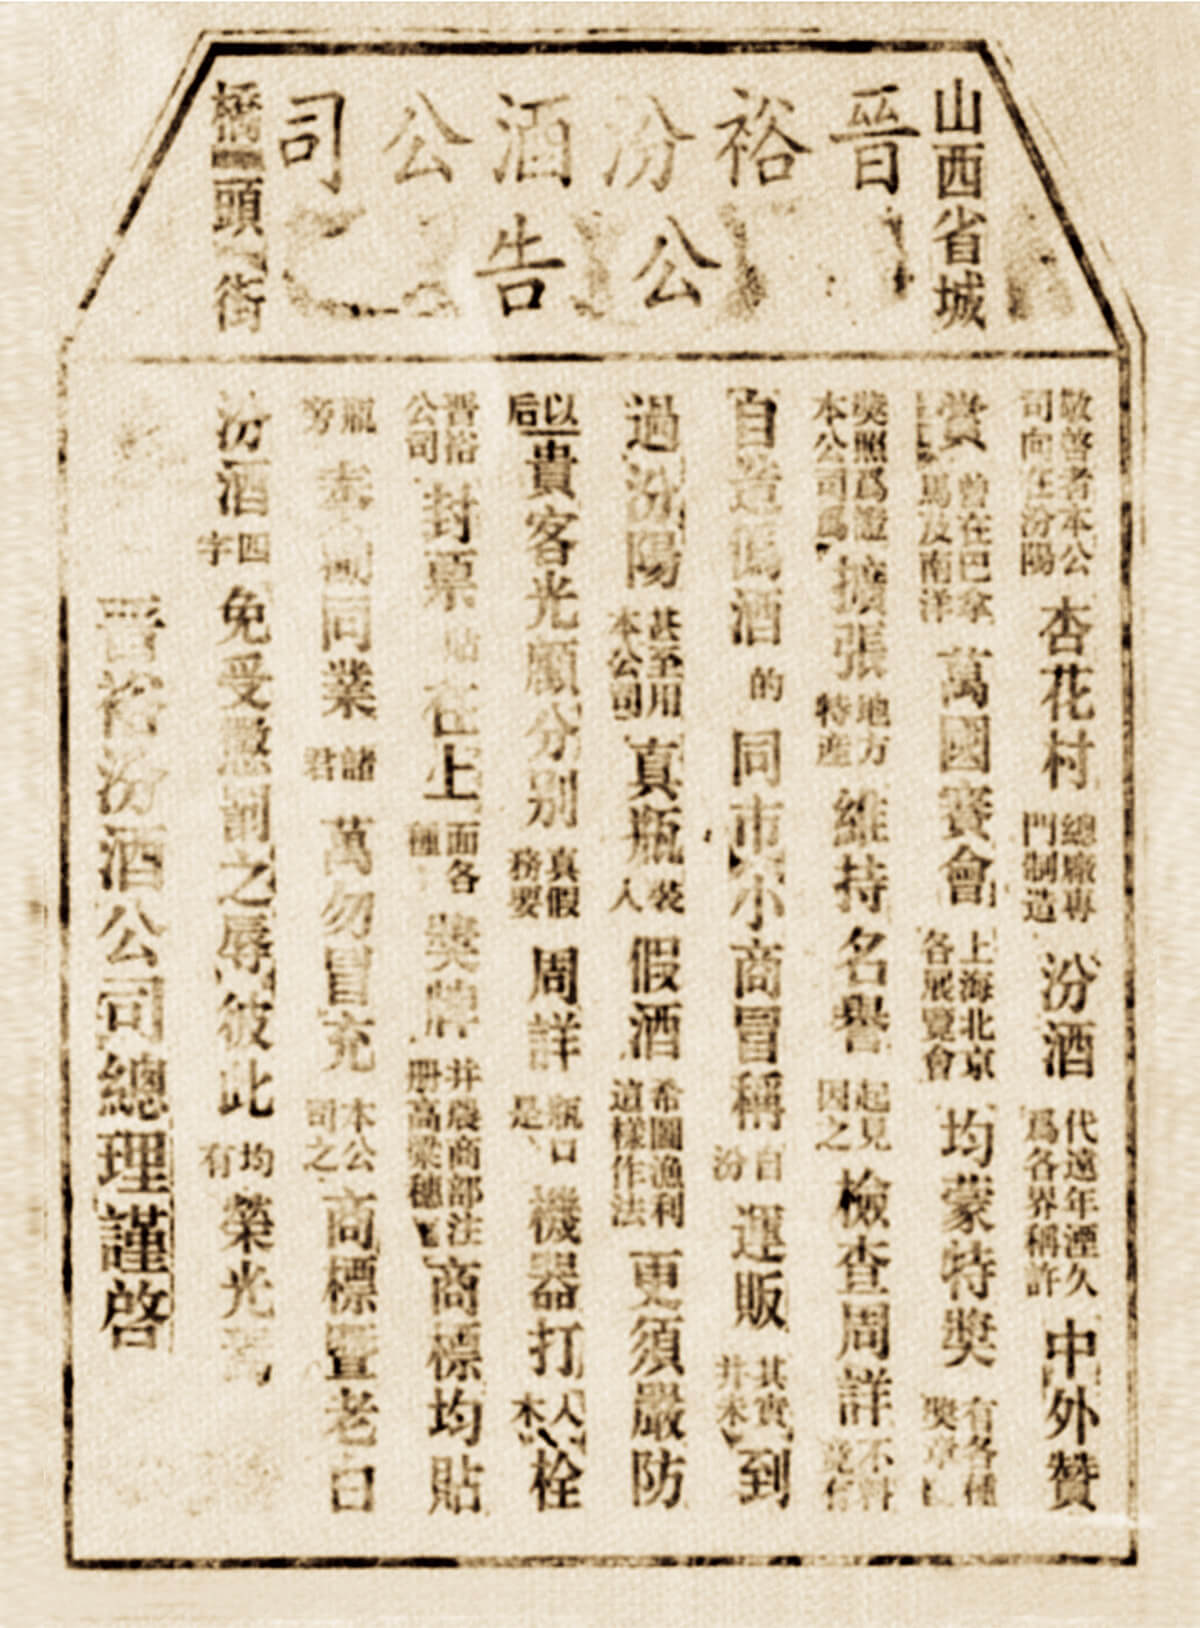 山西省城
晉裕汾酒公司
公告
橋頭街
敬啓者本公司向在汾陽杏花村總廠專門制造汾酒代遠年湮久爲各界稱許中外贊
賞曾在巴拿馬及南洋萬國賽會上海北京各展覽會均蒙特奬有各種奬章
奬照爲證本公司爲擴張地方特產維持名譽起見因之檢查周詳不料竟有
自造僞酒的同市小商冒稱自汾運販其實并未到
過汾陽甚至用本公司真瓶裝入假酒希圖漁利這樣作法更須嚴防
以后貴客光顧分别真假務要周詳瓶口是機器打入木栓
晋裕公司封票貼在上面各種奬牌并農商部注册高粱穗商標均貼
瓶旁同業諸君萬勿冒充本公司之商標暨老白
汾酒四字免受懲罰之辱彼此均有榮光焉
晋裕汾酒公司總理謹啓